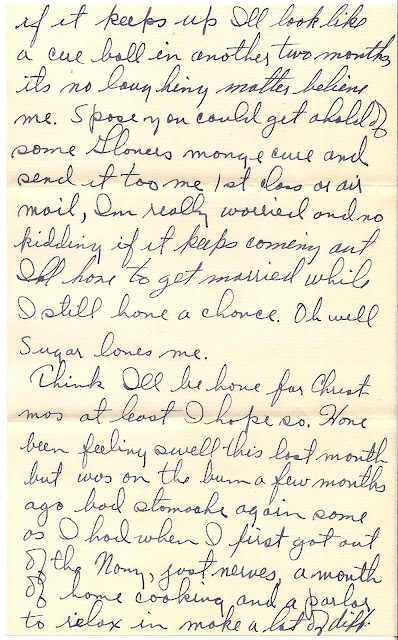 if it keeps up Ill look like
a cue ball in another two months
its no laughing matter believe
me. Spose you could get ahold of
some Glovers mange cure and
send it too me 1st class or air
mail, Im really worried and no
kidding if it keeps coming out
Ill have to get married while
I still have a chance. Oh well
Sugar loves me.
Think Ill be home for Christ
mas at least I hope so. Have
been feeling swell this last month
but was on the bum a few months
ago bad stomache again same
as I had when I first got out
of the Navy, just nerves, a month
of home cooking and a parlor
to relax in make a lot of diff.